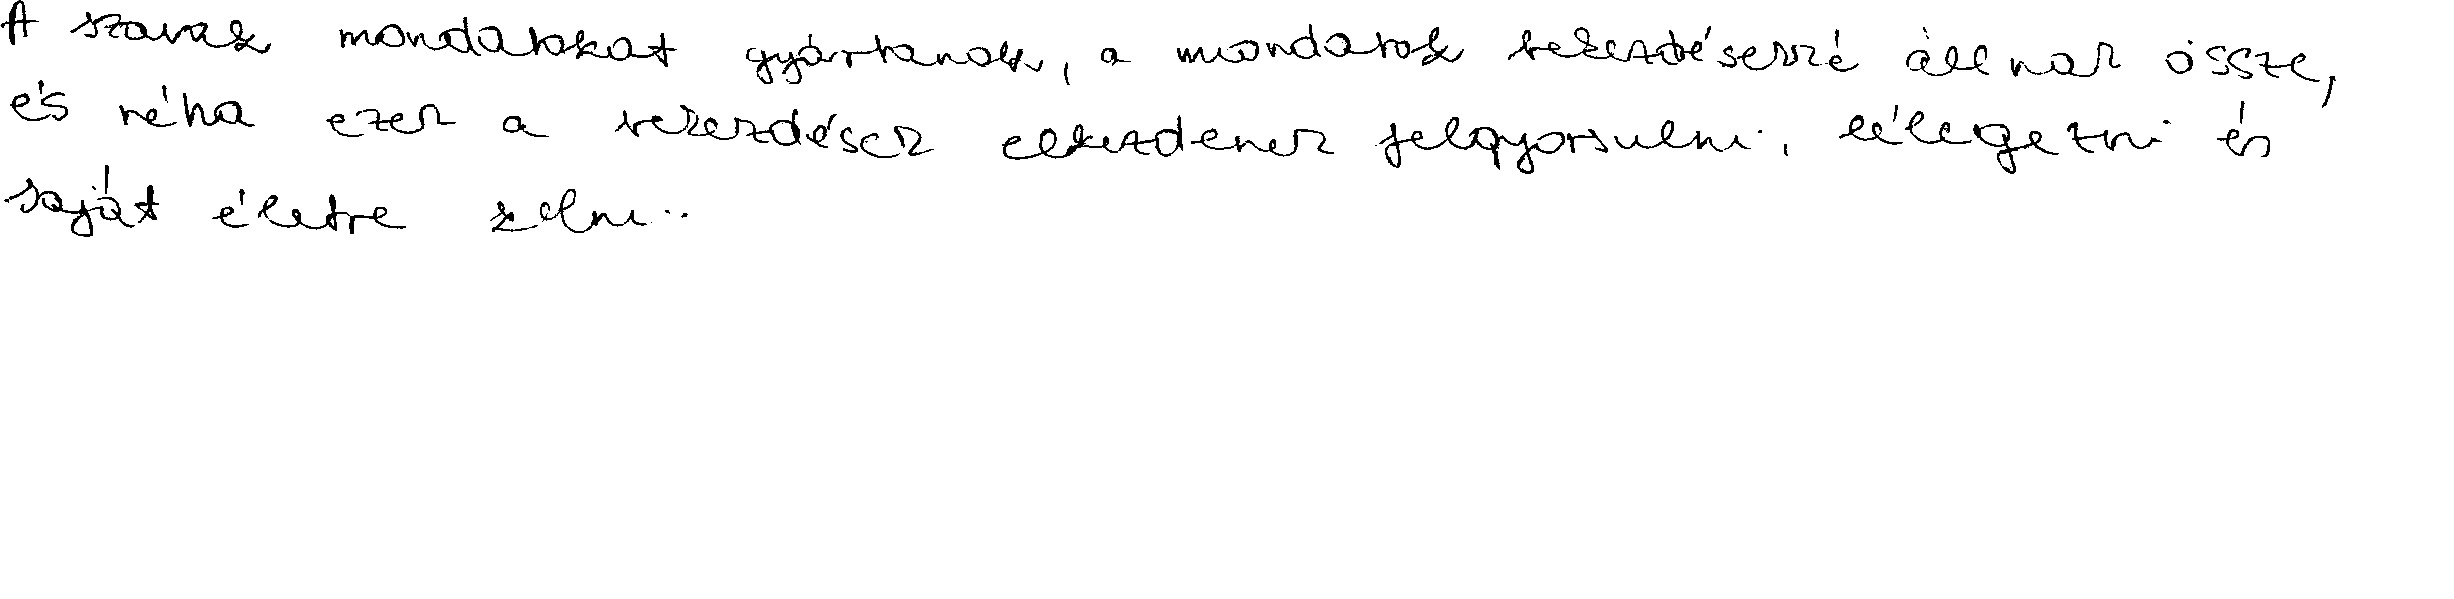 A szavak mondatokat gyártanak, a mondatok bekezdésekké állnak össze,
és néha ezek a bekezdések elkezdenek felgyorsulni, lélegezni és
saját életre kelni..